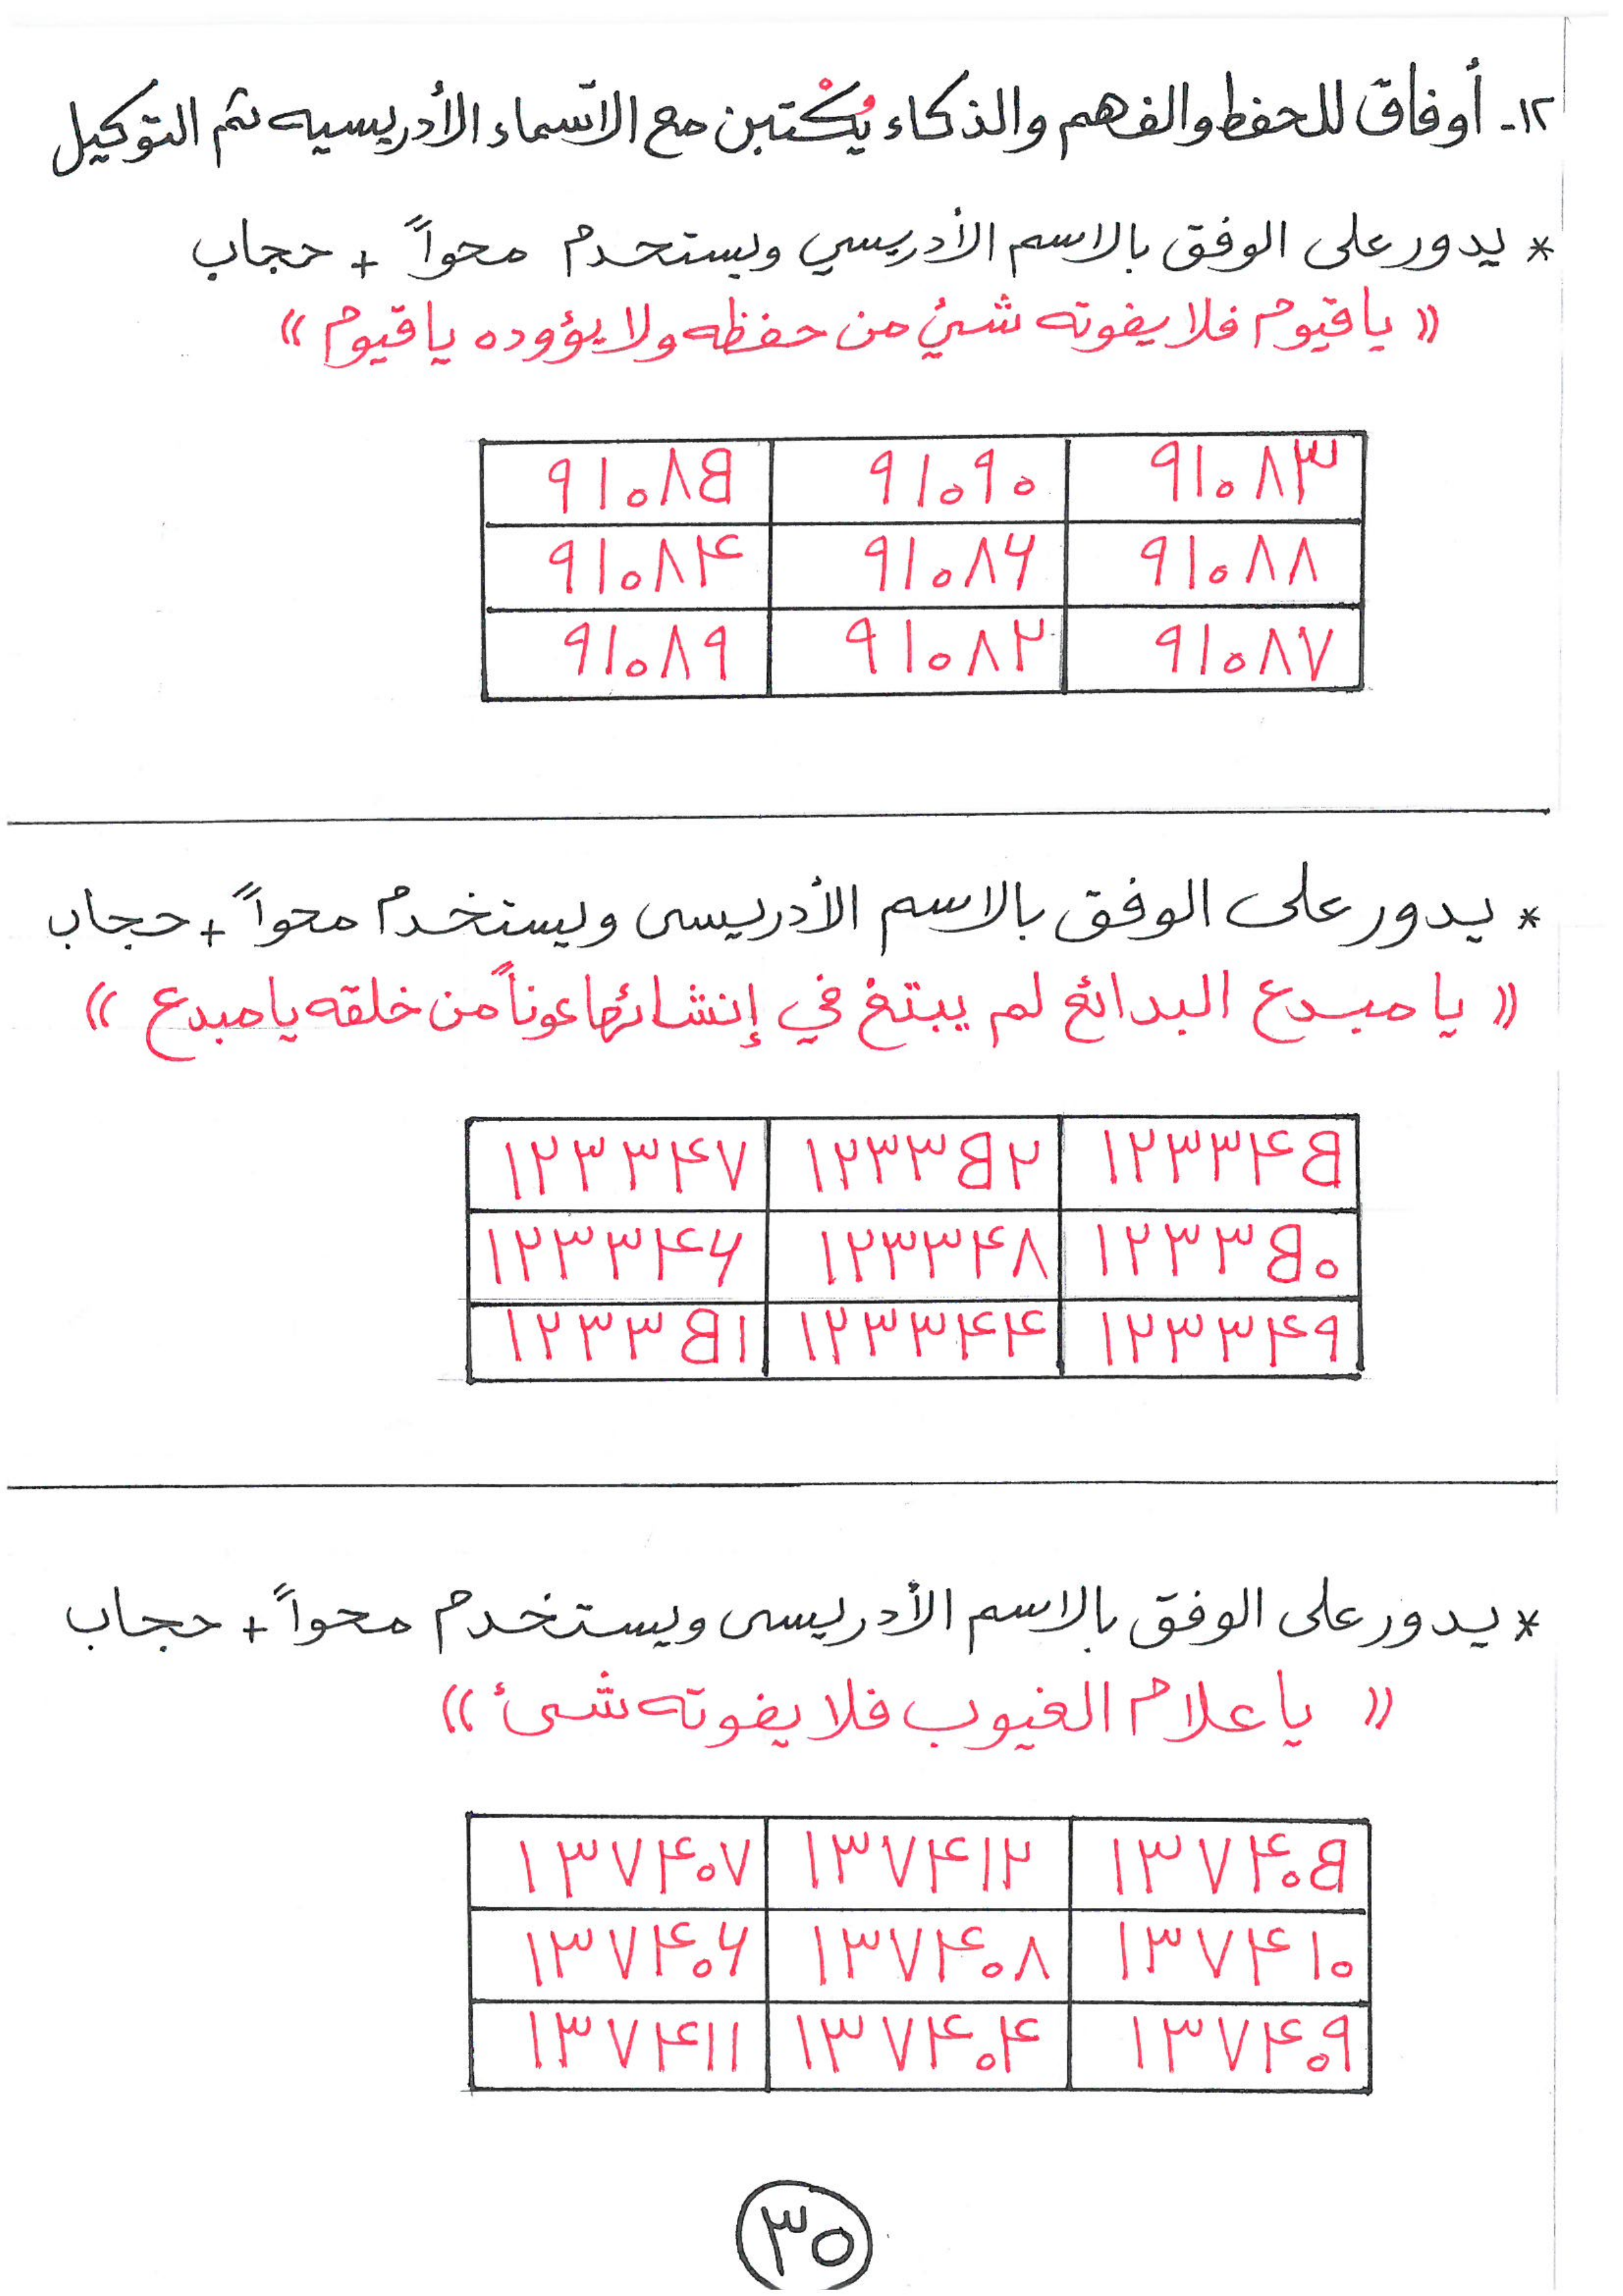 ١٢- أوفاق للحفظ والفهم والذكاء يُكْتبن مع الاسماء الأدريسيه ثم التوكيل
* يدور على الوفق بالاسم الأدريسي ويستحدم محواً + حجاب
(( ياقيوم فلا يفوته شئ من حفظه ولا يؤوده ياقيوم ))
٩١٠٨٥ ٩١٠٩٠ ٩١٠٨٣
٩١٠٨٤ ٩١٠٨٦ ٩١٠٨٨
٩١٠٨٩ ٩١٠٨٢ ٩١٠٨٧
* يدور على الوفق بالاسم الأدريسى ويستخدم محواً + حجاب
(( يا مبدع البدائع لم يبتغ في إنشائها عوناً من خلقه يا مبدع ))
١٢٣٣٤٧ ١٢٣٣٥٢ ١٢٣٣٤٥
١٢٣٣٤٦ ١٢٣٣٤٨ ١٢٣٣٥٠
١٢٣٣٥١ ١٢٣٣٤٤ ١٢٣٣٤٩
* يدور على الوفق بالاسم الأدريسى ويستخدم محواً + حجاب
(( يا علام الغيوب فلا يفوته شئ ))
١٣٧٤٠٧ ١٣٧٤١٢ ١٣٧٤٠٥
١٣٧٤٠٦ ١٣٧٤٠٨ ١٣٧٤١٠
١٣٧٤١١ ١٣٧٤٠٤ ١٣٧٤٠٩
٣٥